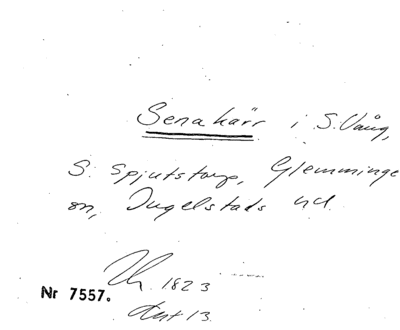 Senakärr i S. Vång,
S. Spjutstorp, Glemminge
sn, Ingelstads hd.
1823
Nr 7557.
13.